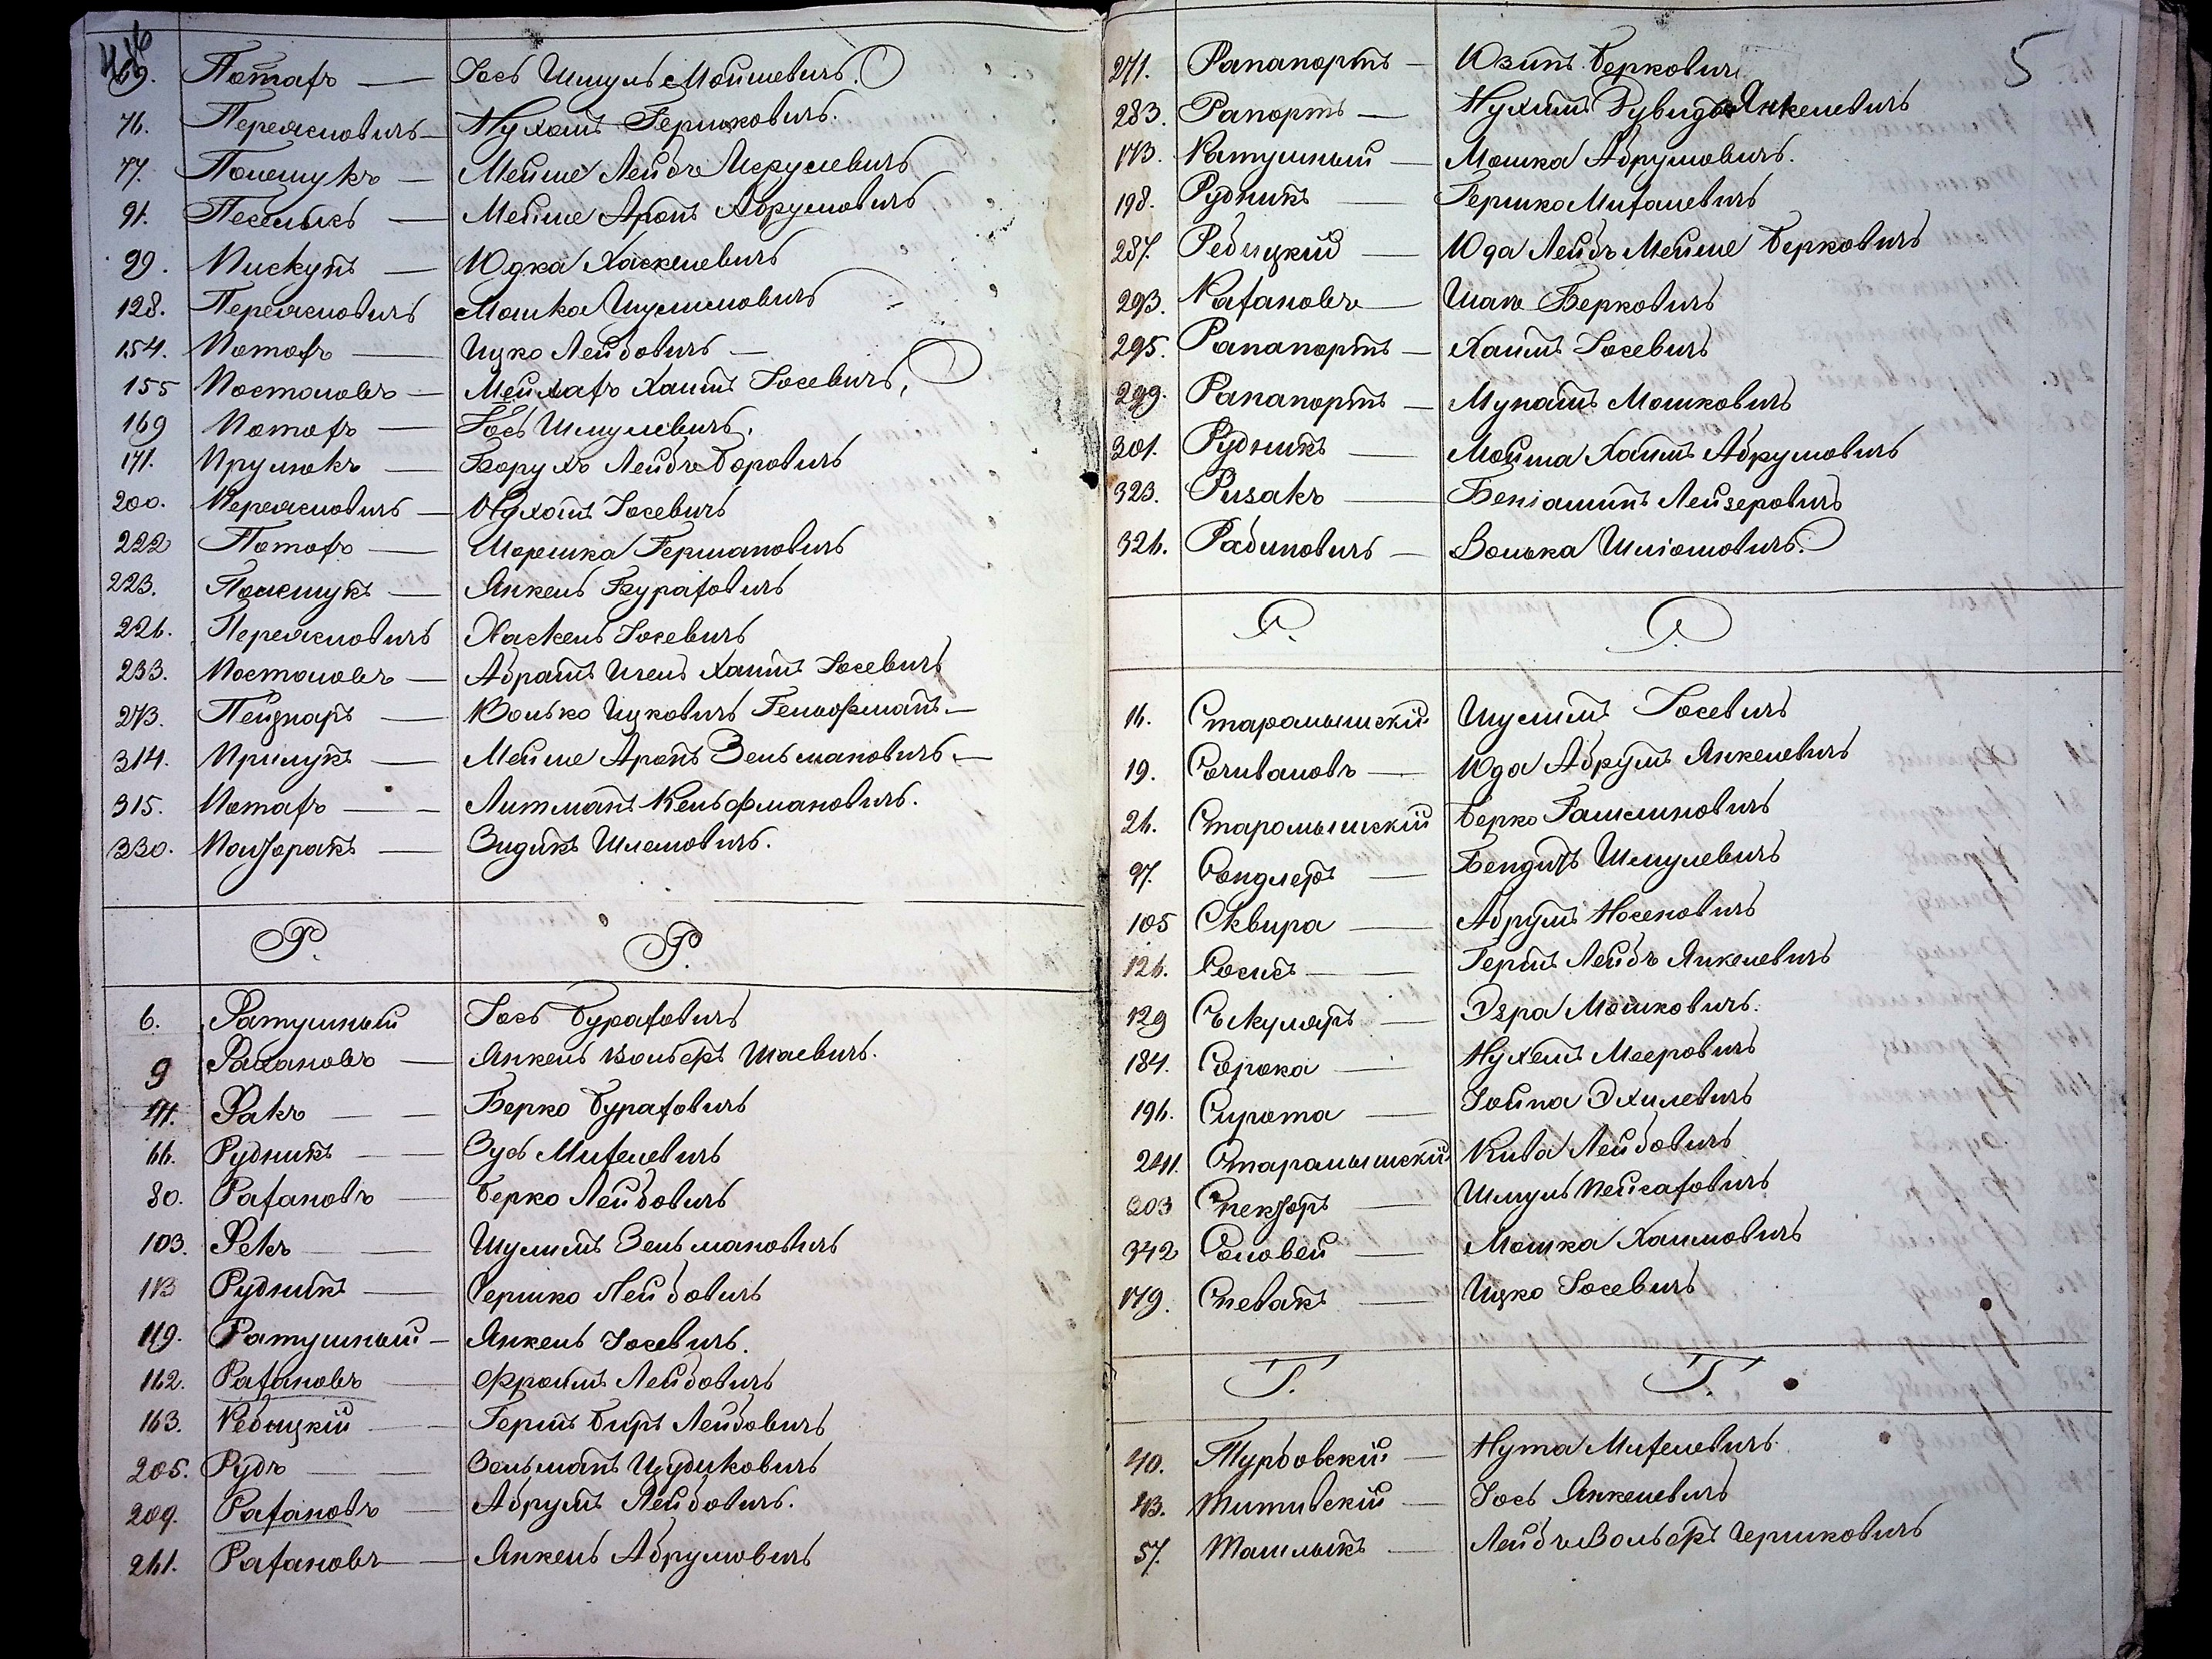 69. Потахъ — Іось Шмуль Мошшевичъ.
76. Переясловичъ — Нухимъ Гершковичъ.
77. Полещукъ — Мейше Лейбъ Исрулевичъ
91. Песелыкъ — Мейше Аронъ Абрумовичъ
99. Пискунъ — Юдка Хаскелевичъ
128. Переясловичъ Мошка Шулимовичъ
154. Потахъ — Ицко Лейбовичъ —
155 Постоловъ — Хаимъ Іосевичъ,
169 Потахъ — Іось Шмулевичъ.
171. Прулюкъ — Борухъ Лейбъ Боровичъ
200. Переясловичъ — Нухимъ Іосевичъ
222 Потахъ — Шорешка Гершановичъ
223. Полещукъ — Янкель Бураховичъ
226. Переясловичъ Хаскель Іосевичъ
233. Постоловъ — Абрамъ Хаимъ Іосевичъ
273. Пейзнаръ — Волько Ицковичъ Гельфманъ —
314. Прилукъ — Мейше Аронъ Зельмановичъ —
315. Потахъ — Литманъ Кельфмановичъ.
330. Полторакъ — Зидикъ Шлемовичъ.
Р. Р.
6. Ратушный Іось Бураховичъ
9 Рахановъ — Янкель Вольфъ Шаевичъ.
Ракъ — Берко Бураховичъ
66. Рудникъ — Зусь Михелевичъ
80. Рахановъ — Берко Лейбовичъ
103. Рекъ — Шулимъ Зельмановичъ
113 Рудникъ — Гершко Лейбовичъ
119. Ратушный — Янкель Іосевичъ.
162. Рахановъ — Фроимъ Лейбовичъ
163. Ребицкій — Гершъ Беръ Лейбовичъ
205. Рудъ — Зельманъ Цудиковичъ
209. Рахановъ — Абрумъ Лейбовичъ.
261. Рахановъ — Янкель Абрумовичъ
5
271. Рапапортъ — Юзипъ Берковичъ
283. Рапортъ — Нухимъ Дувидъ Янкелевичъ
173. Ратушный — Мошка Абрумовичъ.
198. Рудникъ — Гершко Михалевичъ
287. Ребицкій — Юда Лейбъ Мейше Берковичъ
293. Рахановъ — Шаль Берковичъ
295. Рапапортъ — Хаимъ Іосевичъ
299. Рапапортъ — Мунашъ Мошковичъ
301. Рудникъ — Мойша Хаимъ Абрумовичъ
323. Ризакъ — Беніаминъ Лейзеровичъ
326. Рабиновичъ — Волька Шліомовичъ.
С. С.
16. Старомышскій Шулимъ Іосевичъ
19. Соливановъ — Юда Абрумъ Янкелевичъ
26. Старомышскій Берко
97. Сандлеръ — Бендитъ Шмулевичъ
105 Сквира — Абрумъ Носеновичъ
126. Сосисъ — Гершъ Лейбъ Янкелевичъ
129 Секуляръ — Эзра Мошковичъ.
184. Сорока — Нухемъ Мееровичъ
196. Сирота — Іойна Эхилевичъ
241. Старомышскій Кива Лейбовичъ
303 Спекторъ — Шмуль Пейсаховичъ
342 Соловей — Мошка Хаимовичъ
179. Спевакъ — Ицко Іосевичъ
Т. Т.
40. Турбовскій — Нута Михелевичъ.
43. Титивскій — Іось Янкелевичъ
57. Ташлыкъ — Лейбъ Вольфъ Гершковичъ